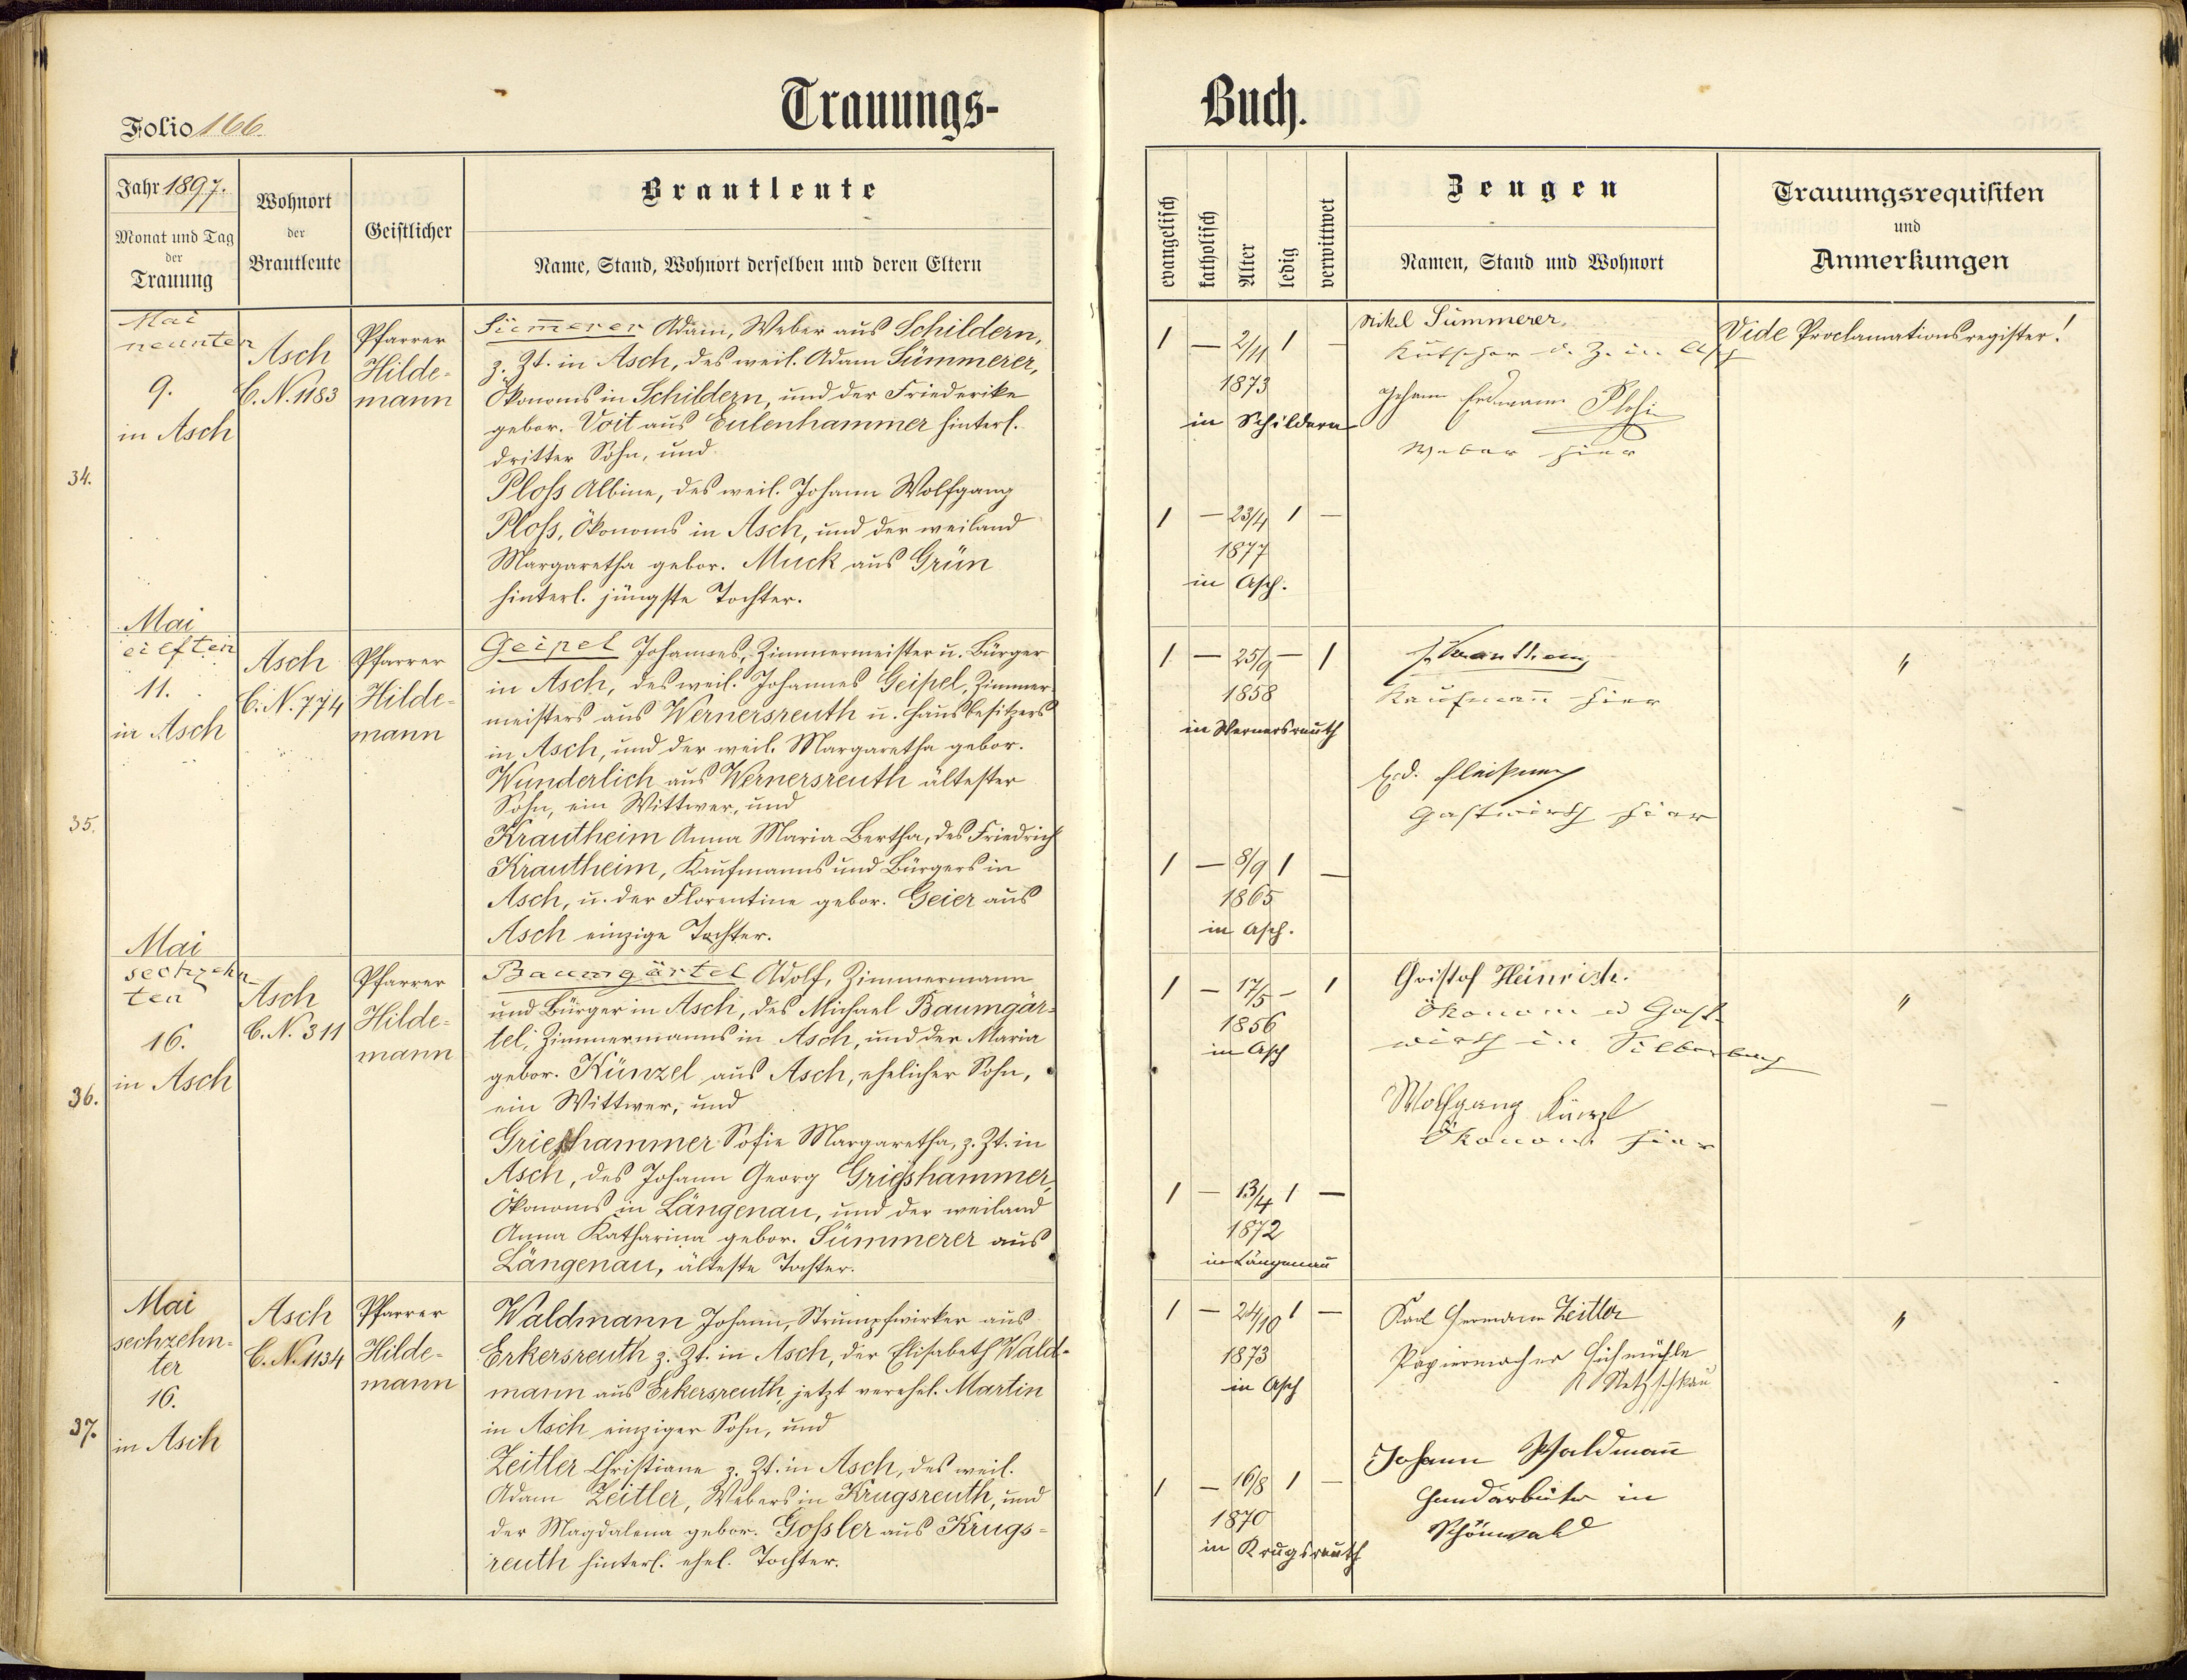 Trauungs-
Buch.
Folio 166.
Jahr 1897.
Monat und Tag
der
Trauung
Wohnort
der
Brautleute
Geistlicher
Brautleute
Name, Stand, Wohnort derselben und deren Eltern
evangelisch
katholisch
Alter
ledig
verwittwet
Zeugen
Namen, Stand und Wohnort
Trauungsrequisiten
und
Anmerkungen
34.
Mai
neunten
9.
in Asch
Asch
C. N. 1183
Pfarrer
Hilde-
mann
Sümerer Adam, Weber aus Schildern,
z. Zt. in Asch, des weil. Adam Sümmerer,
Ökonoms in Schildern, und der Friederike
gebor. Voit aus Eulenhammer hinterl.
dritter Sohn, und
Ploß Albine, des weil. Johann Wolfgang
Ploß, Ökonoms in Asch, und der weiland
Margaretha gebor. Muck aus Grün
hinterl. jüngste Tochter.
1 — 2/11 1 —
1873
in Schildern
1 — 23/4 1 —
1877
in Asch.
Nikel Sümmerer,
Kutscher d. Z. in Asch
Johann Erdmann Ploß
Weber hier
Vide Proclamationsregister!
35.
Mai
eilften
11.
in Asch
Asch
C. N. 774
Pfarrer
Hilde-
mann
Geipel Johannes, Zimmermeister u. Bürger
in Asch, des weil. Johannes Geipel, Zimmer-
meisters aus Wernersreuth u. Hausbesitzers
in Asch, und der weil. Margaretha gebor.
Wunderlich aus Wernersreuth ältester
Sohn, ein Wittwer, und
Krautheim Anna Maria Bertha, des Friedrich
Krautheim, Kaufmanns und Bürgers in
Asch, u. der Florentine gebor. Geier aus
Asch einzige Tochter.
1 — 25/9 — 1
1858
in Wernersreuth
1 — 8/9 1 —
1865
in Asch.
Krautheim
Kaufmann hier
Gastwirth hier
"
36.
Mai
sechzehn
ten
16.
in Asch
Asch
C. N. 311
Pfarrer
Hilde-
mann
Baumgärtel Adolf, Zimmermann
und Bürger in Asch, des Michael Baumgär-
tel, Zimmermanns in Asch, und der Maria
gebor. Künzel aus Asch, ehelicher Sohn,
ein Wittwer, und
Grieshammer Sofie Margaretha, z. Zt. in
Asch, des Johann Georg Grieshammer,
Ökonoms in Längenau, und der weiland
Anna Katharina gebor. Sümmerer aus
Längenau, älteste Tochter.
1 — 17/5 — 1
1856
in Asch
1 — 13/4 1 —
1872
in Längenau
Christof Heinrich.
Ökonom u Gast-
wirth in
Wolfgang Künzl
Ökonom hier
"
37.
Mai
sechzehn-
ter
16.
in Asch
Asch
C. N. 1134
Pfarrer
Hilde-
mann
Waldmann Johann, Strumpfwirker aus
Erkersreuth z. Zt. in Asch, der Elisabeth Wald-
mann aus Erkersreuth, jetzt verehel. Martin
in Asch einziger Sohn, und
Zeitler Christiane z. Zt. in Asch, des weil.
Adam Zeitler, Webers in Krugsreuth, und
der Magdalena gebor. Goßler aus Krugs-
reuth hinterl. ehel. Tochter.
1 — 24/10 1 —
1873
in Asch
1 — 16/8 1 —
1870
in Krugsreuth
Karl Hermann Zeitler
Papiermacher
Netzschkau
Johann Waldmann
Handarbeiter in
Schönwald
"